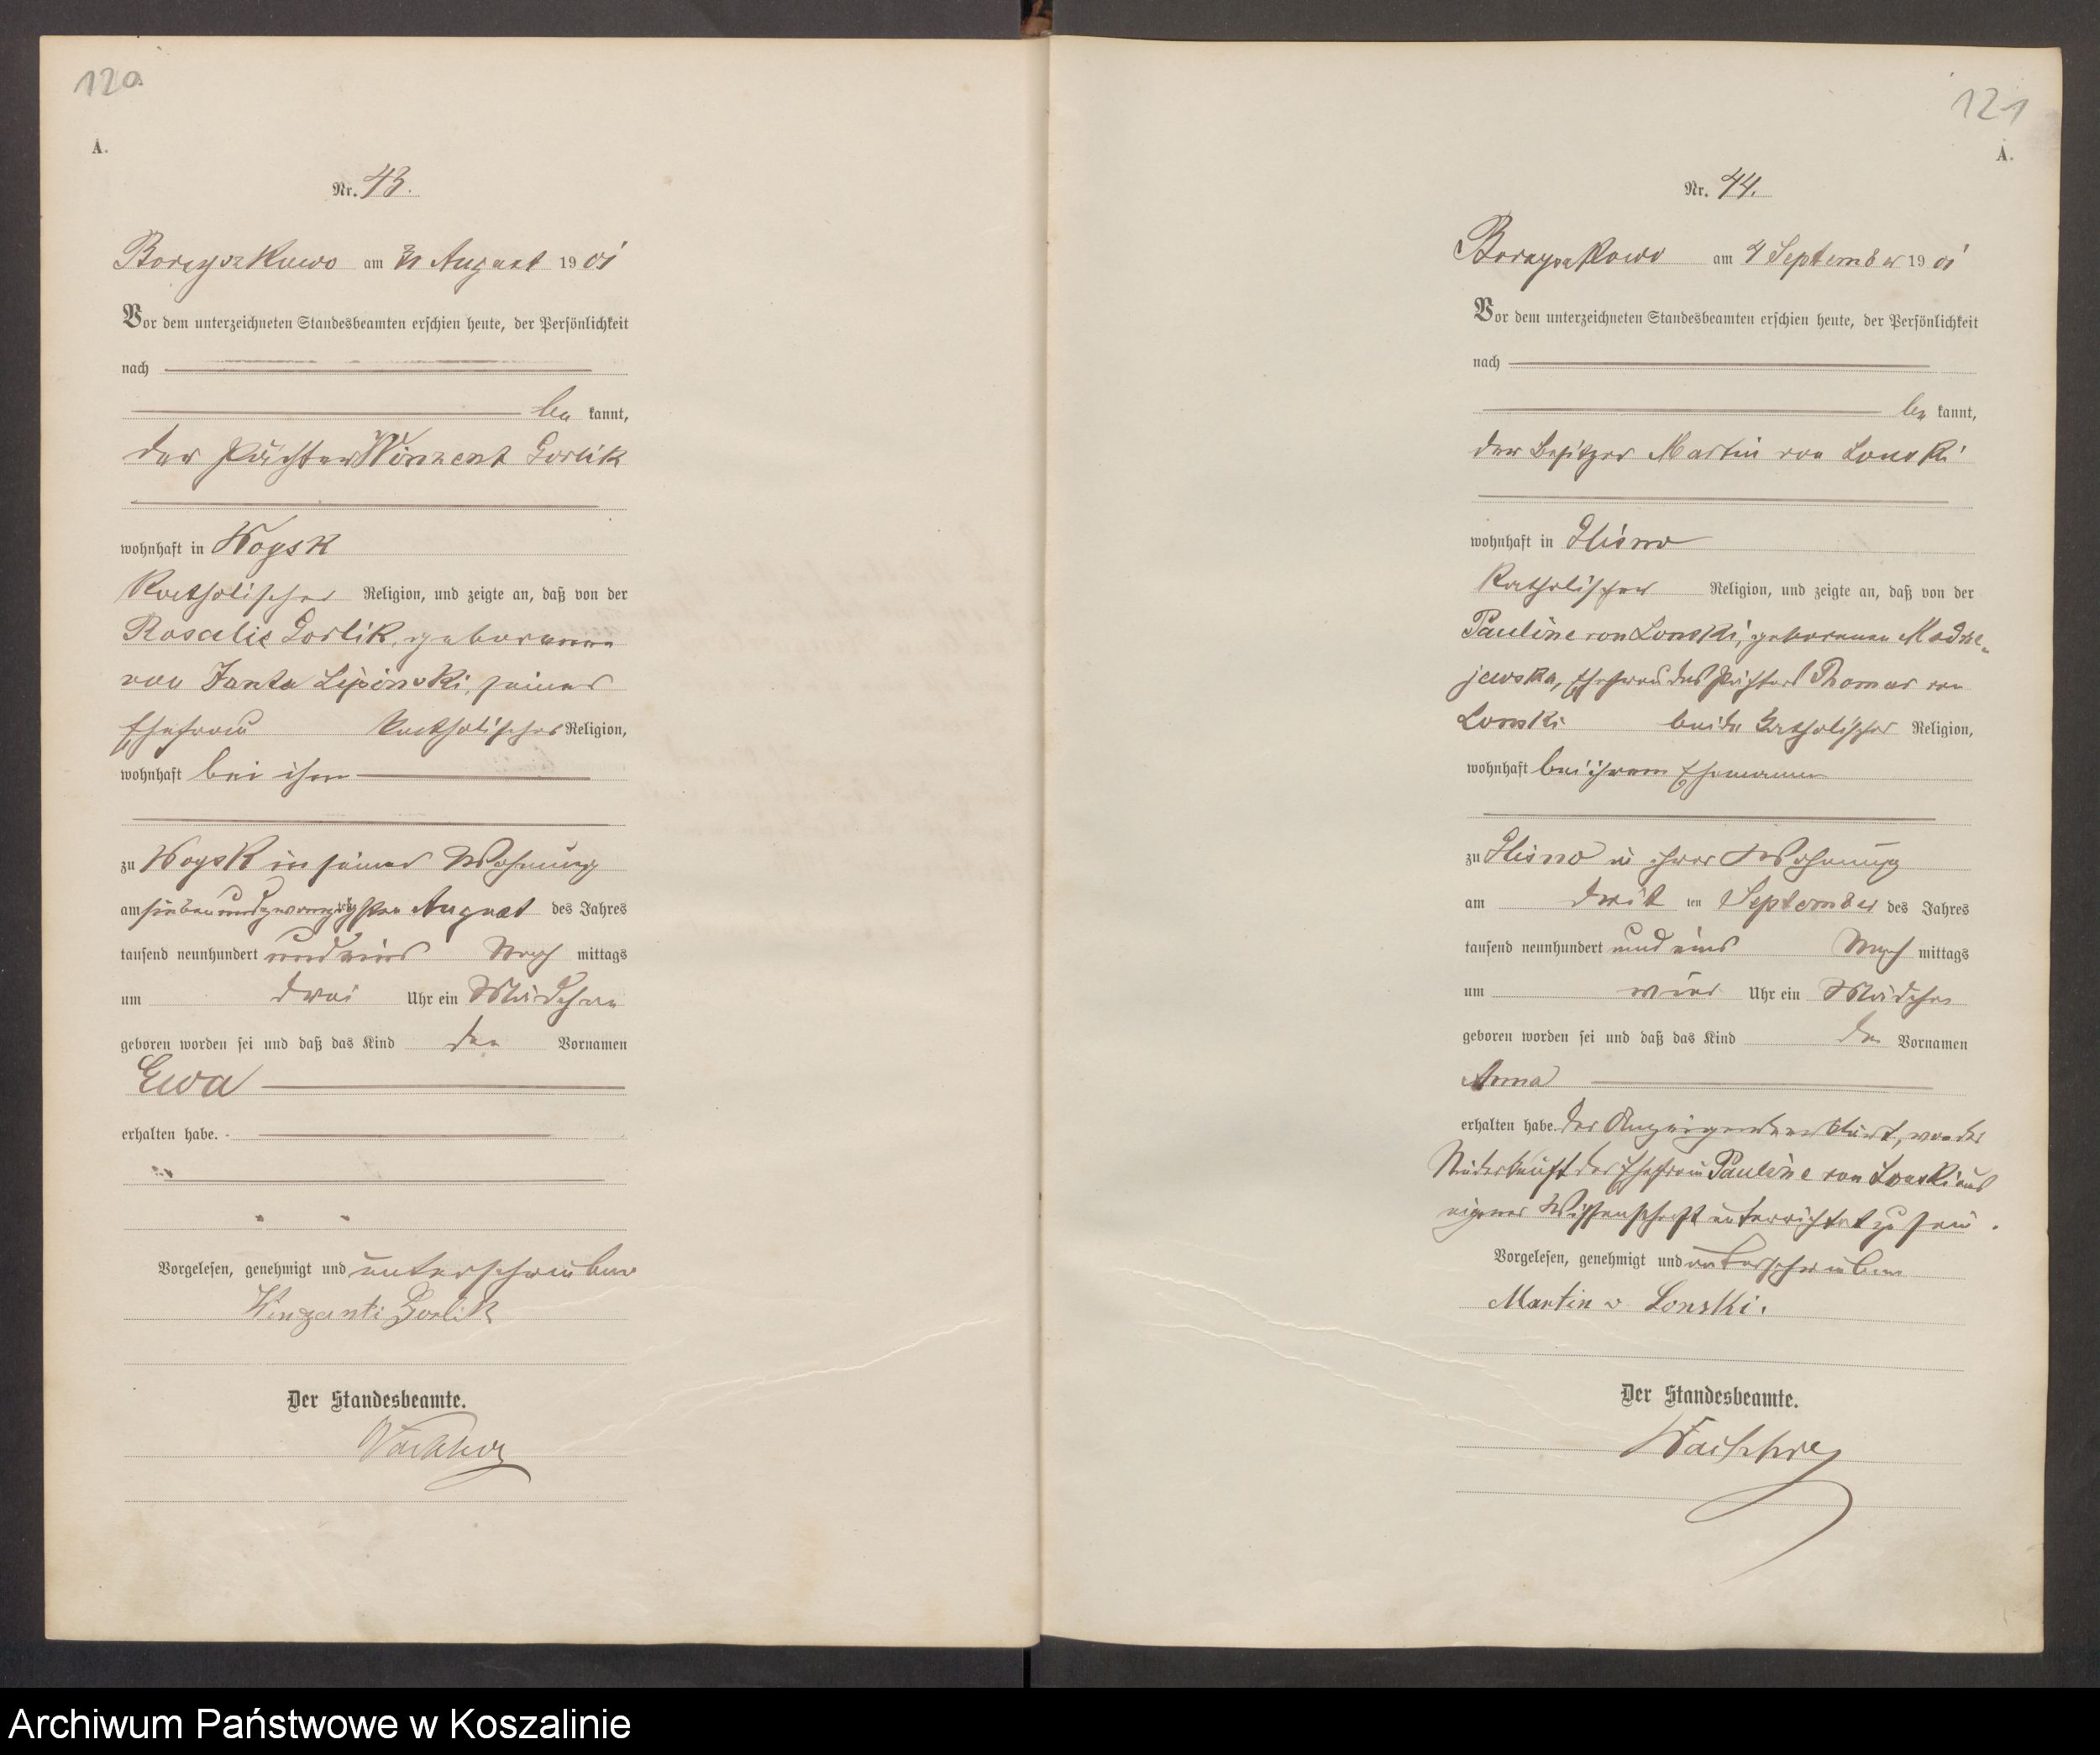 120
A.
Nr. 43.
Borzyszkowo am 31 August 1901
Vor dem unterzeichneten Standesbeamten erschien heute, der Persönlichkeit
nach
be kannt,
der Pächter Winzent Gorlik
wohnhaft in Wogsk
katholischer Religion, und zeigte an, daß von der
Rosalie Gorlik, geborenen
von Janta Lipinski, seiner
Ehefrau katholischer Religion,
wohnhaft bei ihm
zu Wogsk in seiner Wohnung
am siebenundzwanzigsten August des Jahres
tausend neunhundert und eins Nach mittags
um drei Uhr ein Mädchen
geboren worden sei und daß das Kind den Vornamen
Ewa
erhalten habe.
Vorgelesen, genehmigt und unterschrieben
Winzenti Gorlik
Der Standesbeamte.
121
A.
Nr. 44.
Borzyszkowo am 4 September 1901
Vor dem unterzeichneten Standesbeamten erschien heute, der Persönlichkeit
nach
be kannt,
der Besitzer Martin von Lonski
wohnhaft in Glisno
katholischer Religion, und zeigte an, daß von der
Pauline von Lonski, geborenen Madze-
jewska, Ehefrau des Pächters Thomas von
Lonski beide katholischer Religion,
wohnhaft bei ihrem Ehemann
zu Glisno in ihrer Wohnung
am drit ten September des Jahres
tausend neunhundert und eins Nach mittags
um vier Uhr ein Mädchen
geboren worden sei und daß das Kind den Vornamen
Anna
erhalten habe. Der Anzeigende erklärt, von der
Niederkunft der Ehefrau Pauline von Lonski aus
eigener Wissenschaft unterrichtet zu sein.
Vorgelesen, genehmigt und unterschrieben
Martin v Lonski.
Der Standesbeamte.
Archiwum Państwowe w Koszalinie